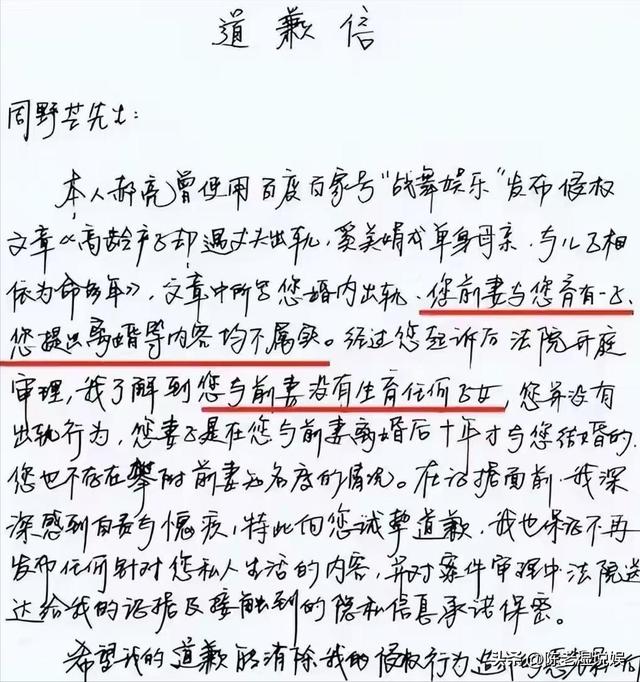 道歉信
周野芒先生：
本人郝亮曾使用百度百家号“战舞娱乐”发布侵权
文章《高龄产子却遇丈夫出轨，奚美娟成单身母亲，与儿子相
依为命多年》，文章中所写您婚内出轨、您前妻与您育有一子、
您提出离婚等内容均不属实。经过您起诉后法院开庭
审理，我了解到您与前妻没有生育任何子女，您并没有
出轨行为，您妻子是在您与前妻离婚后十年才与您结婚的，
您也不存在攀附前妻知名度的情况。在证据面前，我深
深感到自责与愧疚，特此向您诚挚道歉，我也保证不再
发布任何针对您私人生活的内容，并对案件审理中法院送
达给我的证据及接触到的隐私信息承诺保密。
希望我的道歉能消除我的侵权行为造
头条 @陈老湿说娱